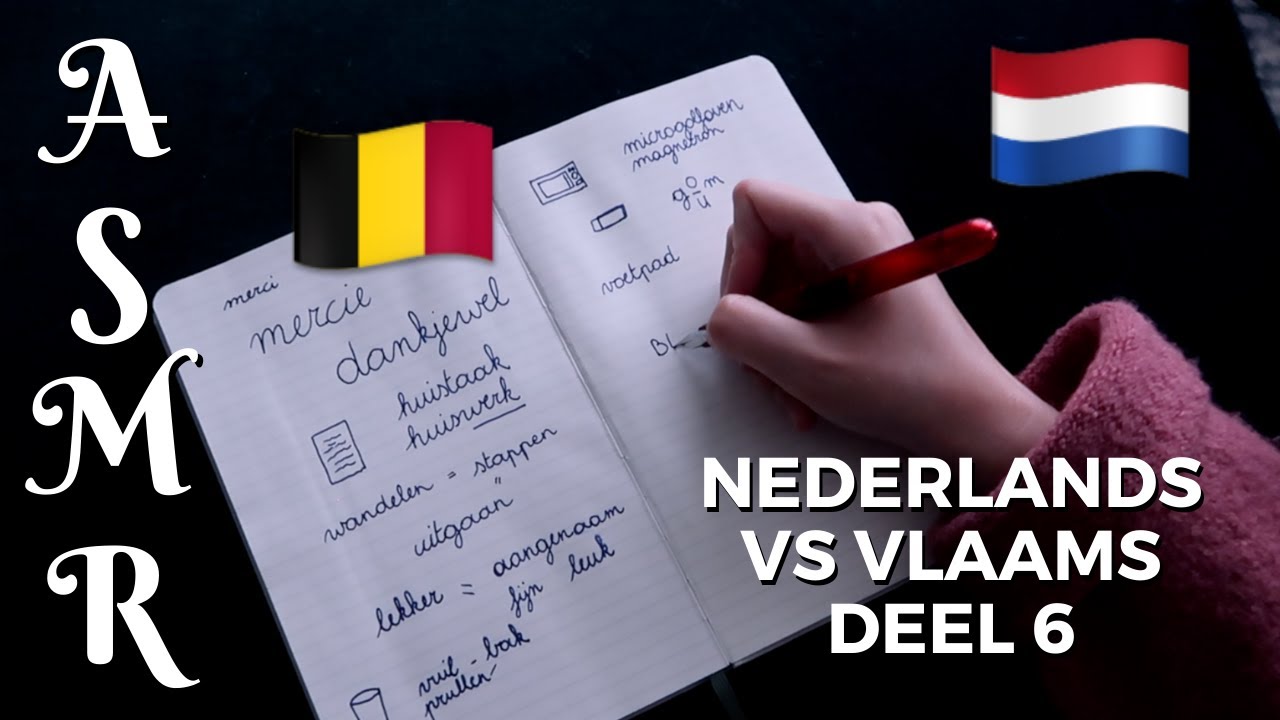 ASMR
merci
mercie
dankjewel
huistaak
huiswerk
wandelen = stappen
"
uitgaan
lekker = aangenaam
fijn leuk
vuil - bak
prullen
microgolfoven
magnetron
gom
u
voetpad
BL
NEDERLANDS
VS VLAAMS
DEEL 6